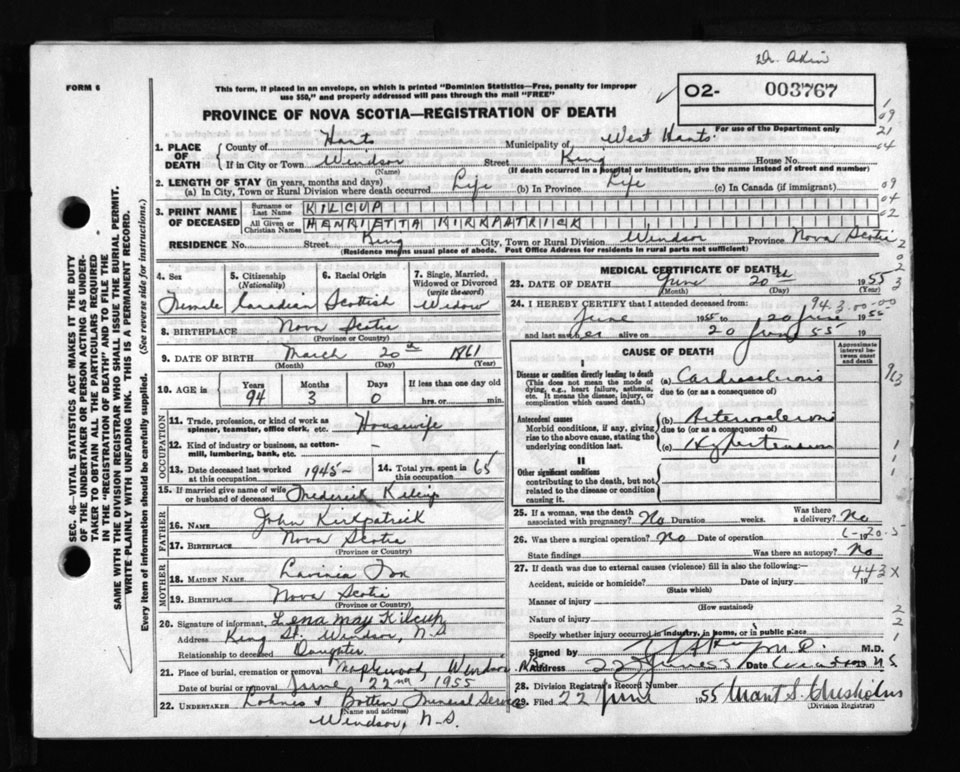 Dr. Akin
FORM 6
This form, if placed in an envelope, on which is printed "Dominion Statistics—Free, penalty for improper
use $50," and properly addressed will pass through the mail "FREE"
02- 003767
For use of the Department only
PROVINCE OF NOVA SCOTIA—REGISTRATION OF DEATH
1. PLACE OF DEATH
County of Hants Municipality of West Hants
If in City or Town Windsor Street King House No.
(Name) (If death occurred in a hospital or institution, give the name instead of street and number)
2. LENGTH OF STAY (in years, months and days)
(a) In City, Town or Rural Division where death occurred Life (b) In Province Life (c) In Canada (if immigrant)
3. PRINT NAME OF DECEASED
Surname or Last Name KILCUP
All Given or Christian Names HENRIETTA KIRKPATRICK
RESIDENCE No. Street King City, Town or Rural Division Windsor Province Nova Scotia
(Residence means usual place of abode. Post Office Address for residents in rural parts not sufficient)
4. Sex Female
5. Citizenship (Nationality) Canadian
6. Racial Origin Scottish
7. Single, Married, Widowed or Divorced (write the word) Widow
8. BIRTHPLACE Nova Scotia
(Province or Country)
9. DATE OF BIRTH March 20th 1861
(Month) (Day) (Year)
10. AGE in Years 94 Months 3 Days 0 If less than one day old hrs. or min.
OCCUPATION
11. Trade, profession, or kind of work as spinner, teamster, office clerk, etc. Housewife
12. Kind of industry or business, as cotton-mill, lumbering, bank, etc. -
13. Date deceased last worked at this occupation 1945-
14. Total yrs. spent in 65
15. If married give name of wife or husband of deceased Frederick Kilcup
FATHER
16. NAME John Kirkpatrick
17. BIRTHPLACE Nova Scotia
(Province or Country)
MOTHER
18. MAIDEN NAME Lavinia Fox
19. BIRTHPLACE Nova Scotia
(Province or Country)
20. Signature of informant, Lena May Kilcup
Address King St. Windsor, N.S.
Relationship to deceased Daughter
21. Place of burial, cremation or removal Maplewood, Windsor N.S.
Date of burial or removal June 22nd 1955
22. Undertaker Lohnes & Botten Funeral Service
(Name and address)
Windsor, N.S.
MEDICAL CERTIFICATE OF DEATH
23. DATE OF DEATH June 20th 1955
(Month) (Day)
24. I HEREBY CERTIFY that I attended deceased from:
94-3-00-00
June 1955 to 20 June 1955
and last saw her alive on 20 June 55 19
CAUSE OF DEATH
Approximate interval between onset and death
I
Disease or condition directly leading to death
(This does not mean the mode of dying, e.g., heart failure, asthenia, etc. It means the disease, injury, or complication which caused death.)
(a) Cardiosclerosis
due to (or as a consequence of)
Antecedent causes
Morbid conditions, if any, giving rise to the above cause, stating the underlying condition last.
(b) Arteriosclerosis
due to (or as a consequence of)
(c) Hypertension
II
Other significant conditions
contributing to the death, but not related to the disease or condition causing it.
25. If a woman, was the death associated with pregnancy? No Duration weeks. Was there a delivery? No
26. Was there a surgical operation? No Date of operation 19
State findings Was there an autopsy? No
27. If death was due to external causes (violence) fill in also the following:—
443X
Accident, suicide or homicide? Date of injury 19
(State which)
Manner of injury
(How sustained)
Nature of injury
Specify whether injury occurred in industry, in home, or in public place
Signed by M.D. M.D.
Address Date
28. Division Registrar's Record Number
29. Filed 22 June 1955 Grant S. Chisholm
(Division Registrar)
SEC. 46—VITAL STATISTICS ACT MAKES IT THE DUTY
OF THE UNDERTAKER OR PERSON ACTING AS UNDER-
TAKER TO OBTAIN ALL THE PARTICULARS REQUIRED
IN THE "REGISTRATION OF DEATH" AND TO FILE THE
SAME WITH THE DIVISION REGISTRAR WHO SHALL ISSUE THE BURIAL PERMIT.
WRITE PLAINLY WITH UNFADING INK. THIS IS A PERMANENT RECORD.
Every item of information should be carefully supplied. (See reverse side for instructions.)